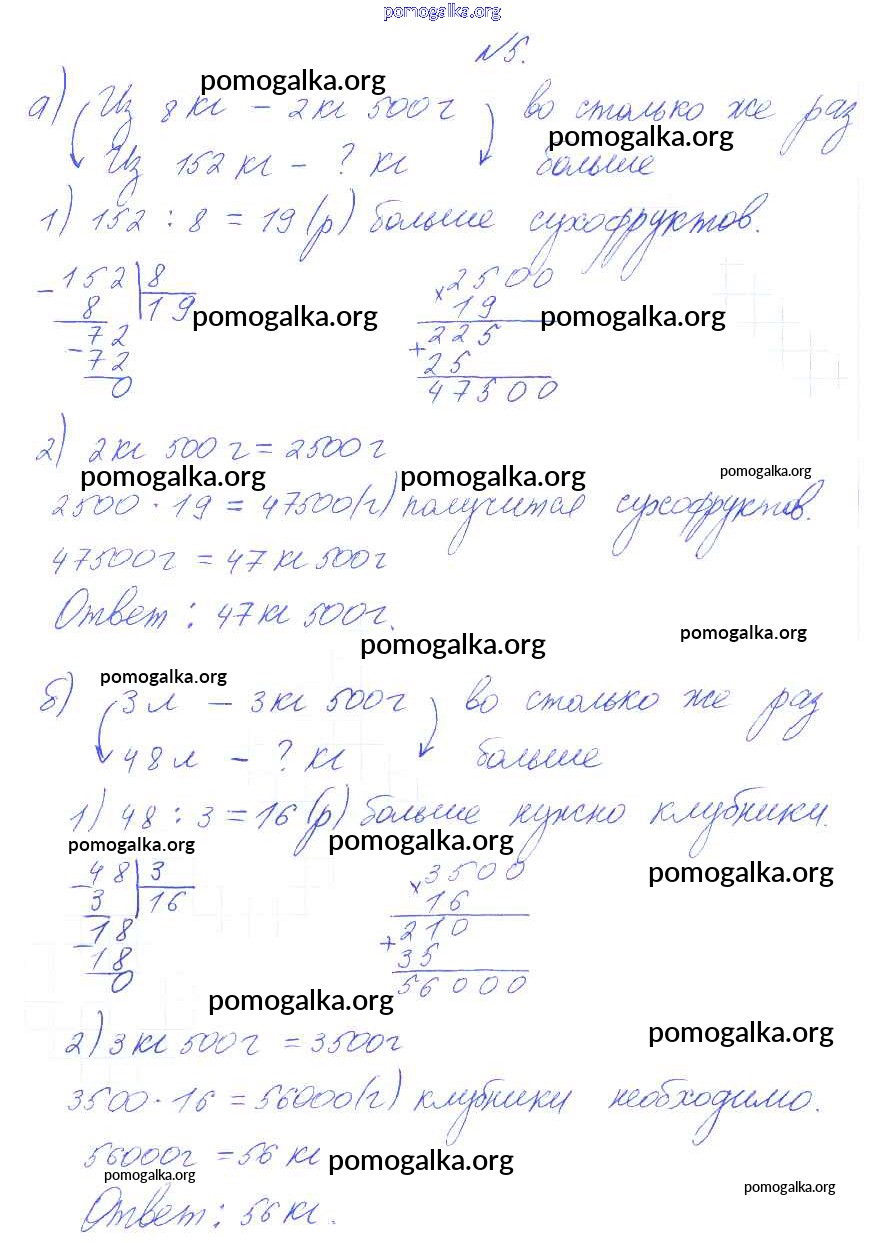 pomogalka.org
№5.
pomogalka.org
а) Из 8 кг – 2 кг 500 г во столько же раз
pomogalka.org
Из 152 кг – ? кг больше
1) 152 : 8 = 19 (р) больше сухофруктов.
- 152 | 8 x 2500
8 19 19
pomogalka.org pomogalka.org
72 + 225
- 72 25
0 47500
2) 2 кг 500 г = 2500 г
pomogalka.org pomogalka.org pomogalka.org
2500 · 19 = 47500 (г) получится сухофруктов.
47500 г = 47 кг 500 г
Ответ: 47 кг 500 г.
pomogalka.org pomogalka.org
pomogalka.org
б) 3 л – 3 кг 500 г во столько же раз
48 л – ? кг больше
1) 48 : 3 = 16 (р) больше нужно клубники.
pomogalka.org pomogalka.org
- 48 | 3 x 3500
pomogalka.org
3 16 16
- 18 + 210
18 35
0 56000
pomogalka.org
2) 3 кг 500 г = 3500 г
pomogalka.org
3500 · 16 = 56000 (г) клубники необходимо.
56000 г = 56 кг
pomogalka.org
pomogalka.org
pomogalka.org
Ответ: 56 кг.